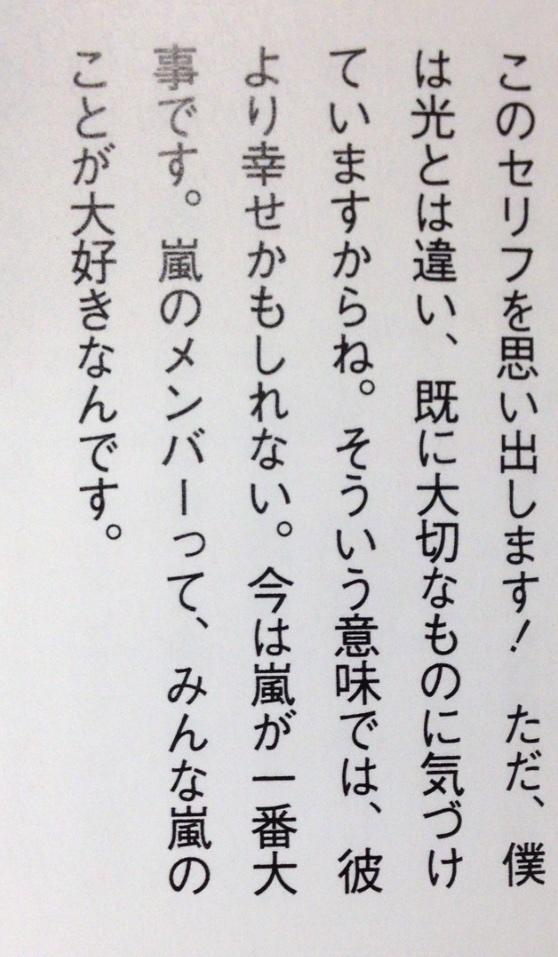 このセリフを思い出します！　ただ、僕
は光とは違い、既に大切なものに気づけ
ていますからね。そういう意味では、彼
より幸せかもしれない。今は嵐が一番大
事です。嵐のメンバーって、みんな嵐の
ことが大好きなんです。